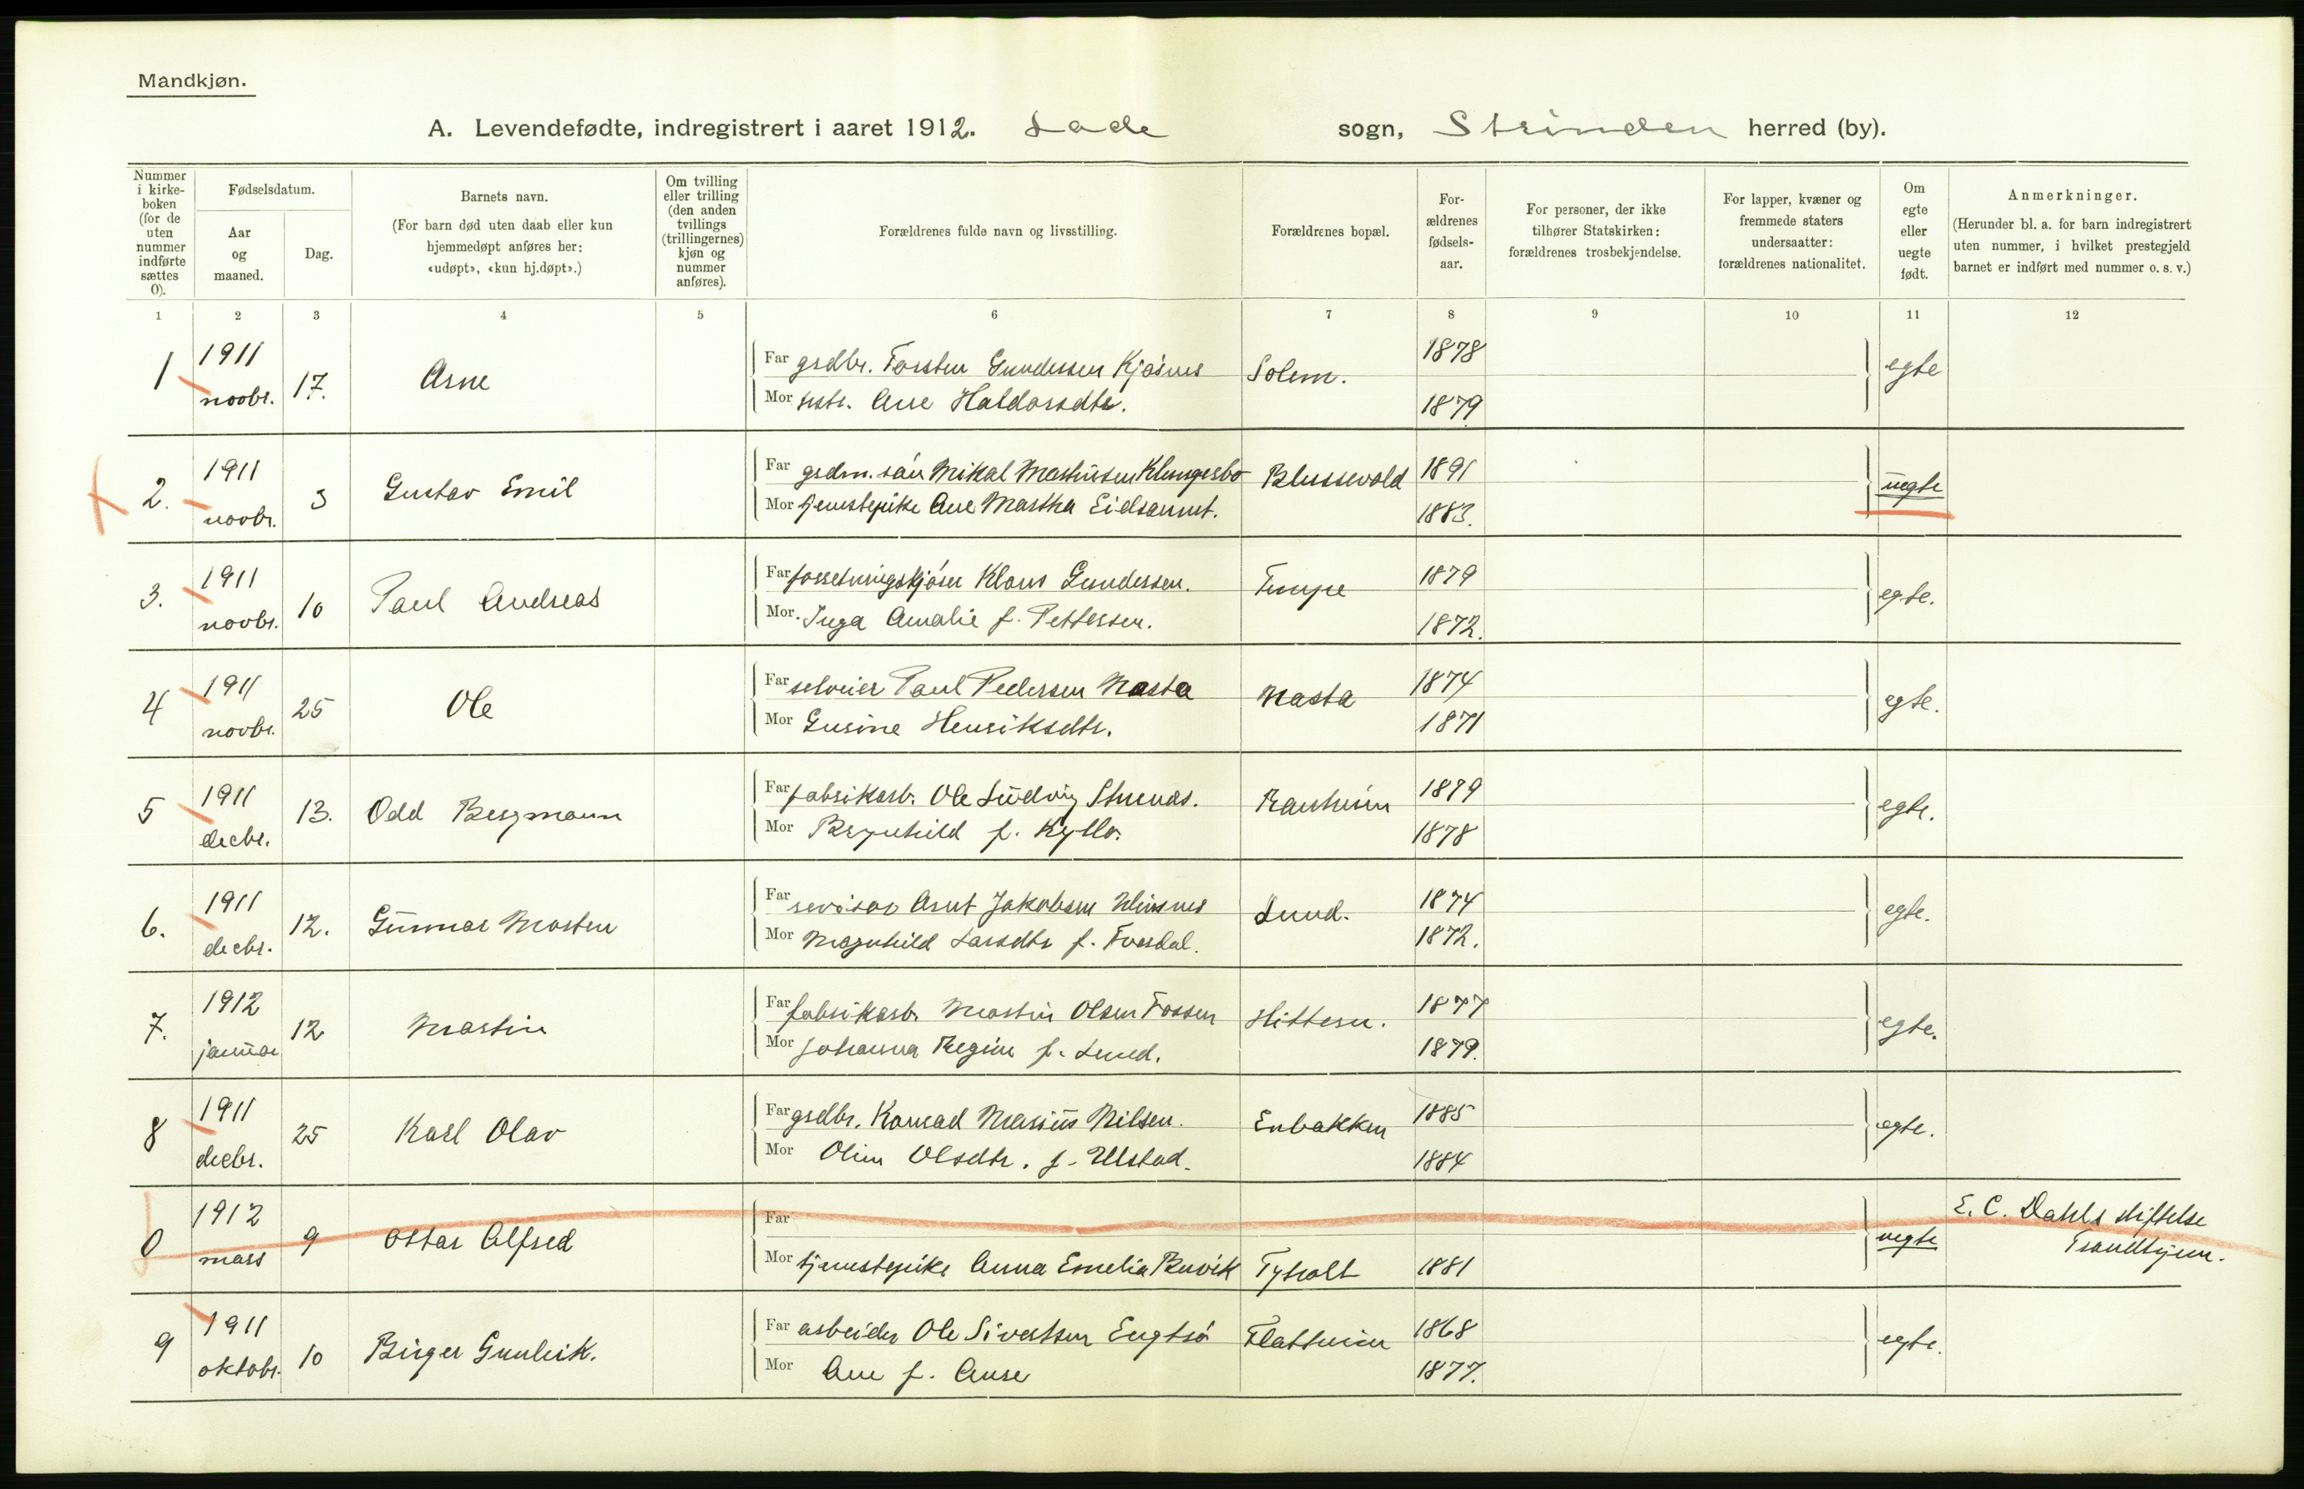 Mandkjøn.
A. Levendefødte, indregistrert i aaret 1912. Lade sogn, Strinden herred (by).
Nummer i kirkeboken (for de uten nummer indførte sættes 0).
Fødselsdatum.
Aar og maaned.
Dag.
Barnets navn.
(For barn død uten daab eller kun hjemmedøpt anføres her: «udøpt», «kun hj.døpt».)
Om tvilling eller trilling (den anden tvillings (trillingernes) kjøn og nummer anføres).
Forældrenes fulde navn og livsstilling.
Forældrenes bopæl.
Forældrenes fødselsaar.
For personer, der ikke tilhører Statskirken: forældrenes trosbekjendelse.
For lapper, kvæner og fremmede staters undersaatter: forældrenes nationalitet.
Om egte eller uegte født.
Anmerkninger.
(Herunder bl. a. for barn indregistrert uten nummer, i hvilket prestegjeld barnet er indført med nummer o. s. v.)
1 2 3 4 5 6 7 8 9 10 11 12
1 1911 novbr. 17. Arne
Far grdbr. Torsten Gundersen Kjøsnes Solem. 1878 egte
Mor hstr. Ane Haldorsdtr. 1879
2. 1911 novbr. 3 Gustav Emil
Far grdm. søn Mikal Martinsen Klungerbo Blussevold 1891 uegte
Mor tjenestepike Ane Martha Eidsaunet. 1883.
3. 1911 novbr. 10 Paul Andreas
Far forretningskjører Klaus Gundersen. Tempe 1879 egte.
Mor. Inga Amalie f. Pettersen. 1872.
4 1911 novbr. 25 Ole
Far selveier Paul Pedersen Nasta Nasta 1874 egte.
Mor Gurine Henriksdtr. 1871
5 1911 decbr. 13. Odd Bergmann
Far fabrikarb. Ole Ludvig Ranheim 1879 egte.
Mor Brynhild f. Kyllo. 1878
6. 1911 decbr. 12. Gunnar Morten
Far revisor Arnt Jakobsen Lund. 1874 egte.
Mor Magnhild Larsdtr f. 1872.
7. 1912 januar 12 Martin
Far fabrikarb. Martin Olsen Fossen Hitteren. 1877 egte.
Mor Johanna Regine f. Lund. 1879.
8 1911 decbr. 25 Karl Olav
Far grdbr. Konrad Marius Nilsen. Enbakken 1885 egte.
Mor Oline Olsdtr. f. Ulstad. 1884
0 1912 mars 9 Ottar Alfred
Far uegte E. C. Dahls stiftelse Trondhjem.
Mor tjenestepike Anna Emelia Buvik Tyholt 1881
9 1911 oktobr. 10 Birger Gunleik.
Far arbeider Ole Sivertsen Engtrø Flatheim 1868 egte.
Mor Ane f. Aune 1877.